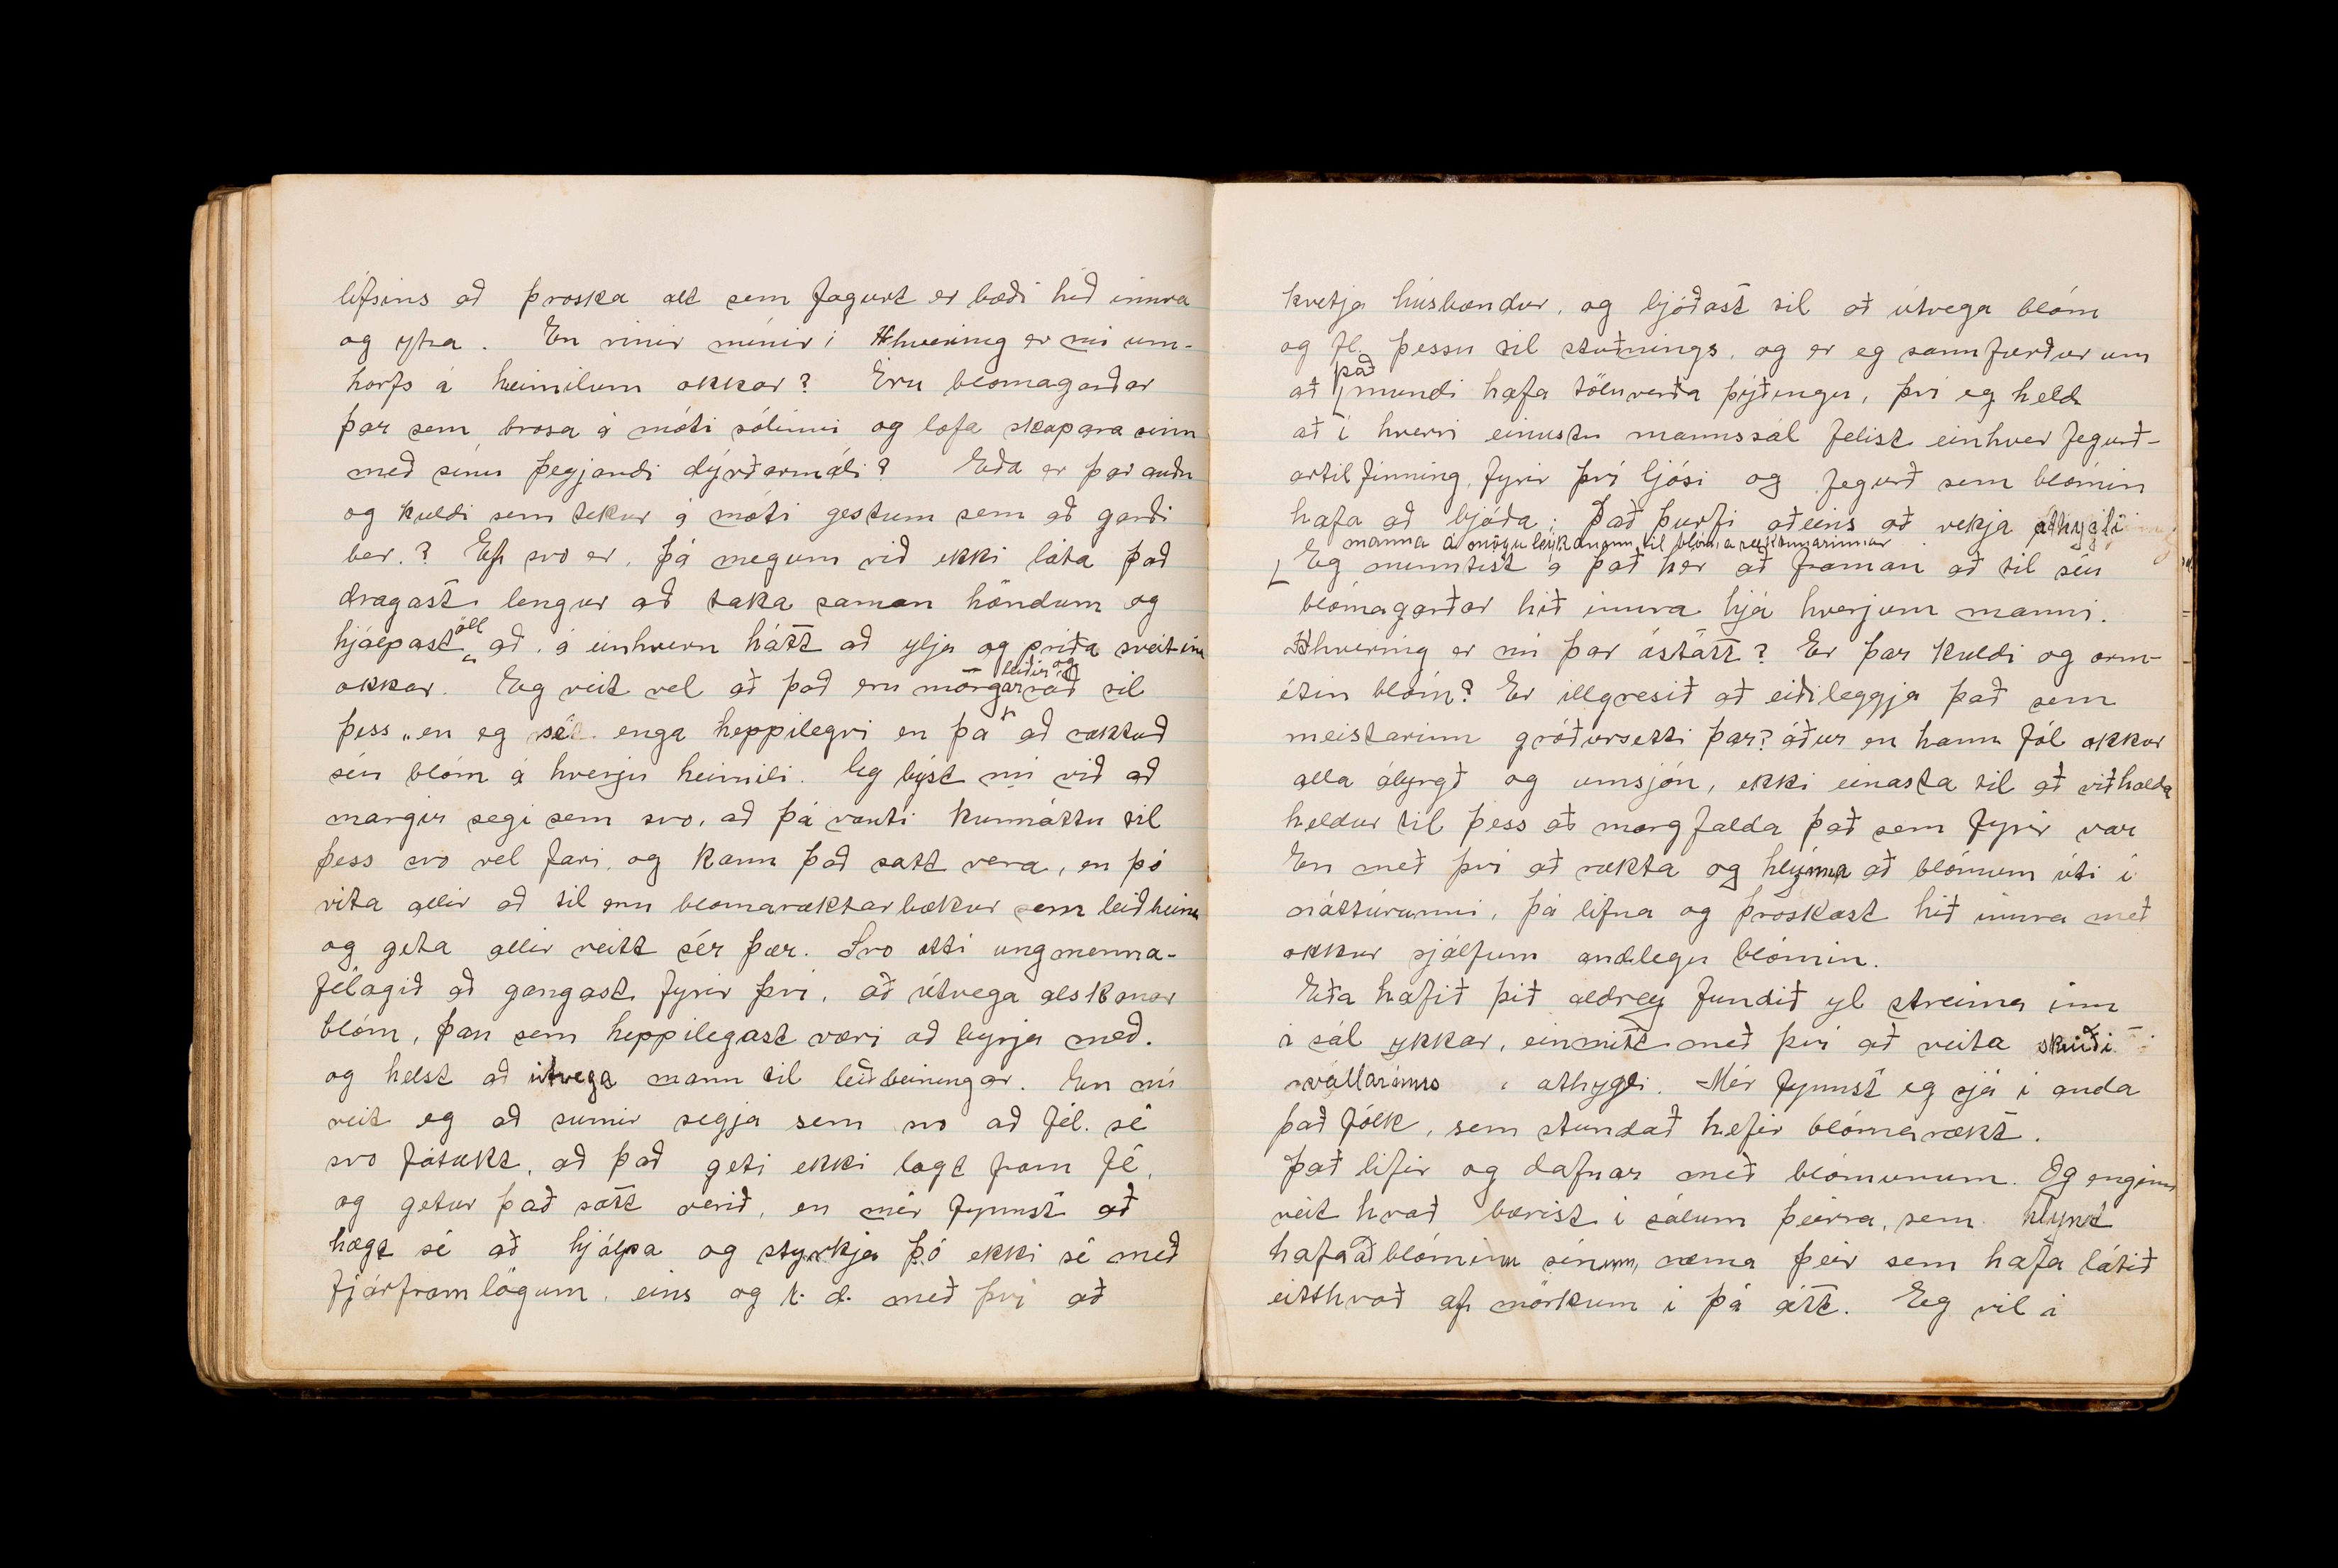 lífsins að þroska alt sem fagurt er bæði hið innra
og ytra. En vinir mínir! Hhvernig er nú um-
horfs á heimilum okkar? Eru blomagarðar
þar sem brosa á móti sólinni og lofa skapara sinn
með sínu þegjandi dýrðarmáli? Eða er þar auðn
og kuldi sem tekur á móti gestum sem að garði
ber.? Ef svo er, þá megum við ekki láta það
dragast lengur að taka saman höndum og
hjálpast öll að, á einhvern hátt að ylja og príða sveitina
okkar. Eg veit vel að það eru margar leiðir og ráð til
þess, en eg sé enga heppilegri en þá að ræktuð
séu blóm á hverju heimili. Eg býst nú við að
margir segi sem svo, að þá vanti kunnáttu til
þess svo vel fari, og kann það satt vera, en þó
vita allir að til eru blomaræktarbækur sem leiðbeina
og geta allir veitt sér þær. Svo ætti ungmenna-
félagið að gangast fyrir því, að útvega alskonar
blóm, þau sem heppilegast væri að byrja með.
og helst að útvega mann til leiðbeiningar. En nú
veit eg að sumir segja sem svo að fél. sé
svo fátækt, að það geti ekki lagt fram fé,
og getur það sátt verið, en mér fynnst að
hægt sé að hjálpa og styrkja þó ekki sé með
fjárframlögum, eins og t. d. með því að
hvetja húsbændur, og bjóðast til að útvega blóm
og fl. þessu til stuðnings, og er eg sannfærður um
að það mundi hafa töluverða þýðingu, því eg held
að í hverri einustu mannssál felist einhver fegurð-
artilfinning, fyrir því ljósi og fegurð sem blómin
hafa að bjóða; Það þurfi aðeins að vekja athygli
manna á möguleykanum til blómaræktunarinnar
Eg minntist á það hér að framan að til séu
blómagarðar hið innra hjá hverjum manni.
Hhvernig er nú þar ástátt? Er þar kuldi og orm-
étin blóm? Er illgresið að eiðileggja það sem
meistarinn gróðursetti þar? áður en hann fól okkur
alla ábyrgð og umsjón, ekki einasta til að viðhalda
heldur til þess að margfalda það sem fyrir var
En með því að rækta og hlynna að blómum úti í
náttúrunni, þá lifna og þroskast hið innra með
okkur sjálfum andlegu blómin.
Eða hafið þið aldrey fundið yl streima inn
í sál ykkar, einmitt með því að veita skrúði
vallarins athygli. Mér fynnst eg sjá í anda
það fólk, sem stundað hefir blómarækt.
Það lifir og dafnar með blómunum. Og enginn
veit hvað bærist í sálum þeirra, sem hlynt
hafa að blómum sínum, nema þeir sem hafa látið
eitthvað af mörkum í þá átt. Eg vil í